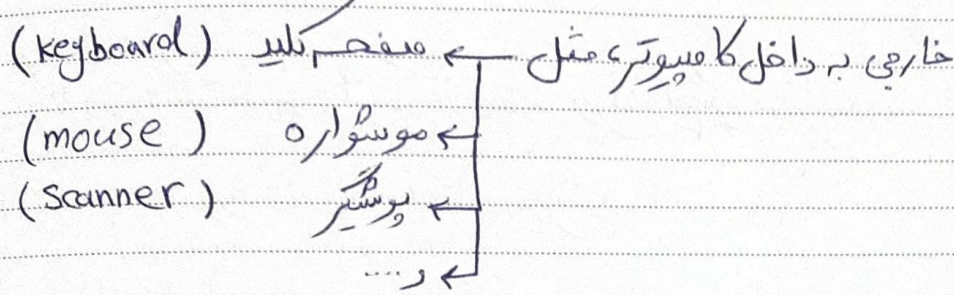 خارجی به داخل کامپیوتر، مثل ← صفحه کلید (keyboard)
← موشواره (mouse)
← پوشگیر (scanner)
← و....